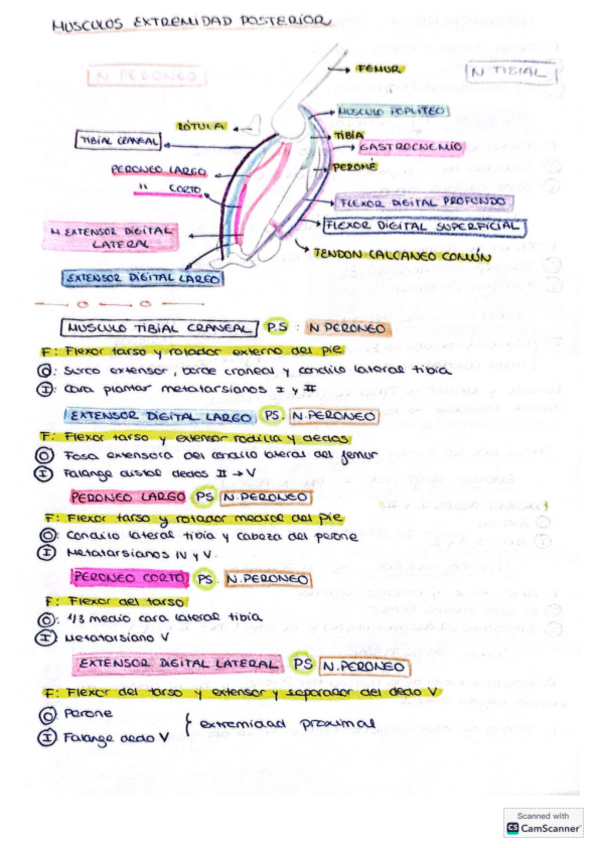 MUSCULOS EXTREMIDAD POSTERIOR
N PERONEO
N TIBIAL
FEMUR
MUSCULO POPLITEO
RÓTULA
TIBIA
TIBIAL CRANEAL
GASTROCNEMIO
PERONEO LARGO
PERONÉ
" CORTO
FLEXOR DIGITAL PROFUNDO
FLEXOR DIGITAL SUPERFICIAL
M EXTENSOR DIGITAL LATERAL
TENDON CALCANEO COMÚN
EXTENSOR DIGITAL LARGO
MUSCULO TIBIAL CRANEAL P.S : N PERONEO
F: Flexor tarso y rotador externo del pie
O: Surco extensor, borde craneal y condilo lateral tibia
I: Cara plantar metatarsianos I y II
EXTENSOR DIGITAL LARGO PS. N.PERONEO
F: Flexor tarso y extensor rodilla y dedos
O Fosa extensora del condilo lateral del femur
I Falange distal dedos II → V
PERONEO LARGO PS N.PERONEO
F: Flexor tarso y rotador medial del pie
O: Condilo lateral tibia y cabeza del perone
I Metatarsianos IV y V.
PERONEO CORTO PS. N.PERONEO
F: Flexor del tarso
O: 1/3 medio cara lateral tibia
I Metatarsiano V
EXTENSOR DIGITAL LATERAL PS N.PERONEO
F: Flexor del tarso y extensor y separador del dedo V
O Perone
{ extremidad proximal
I Falange dedo V
Scanned with
CS CamScanner